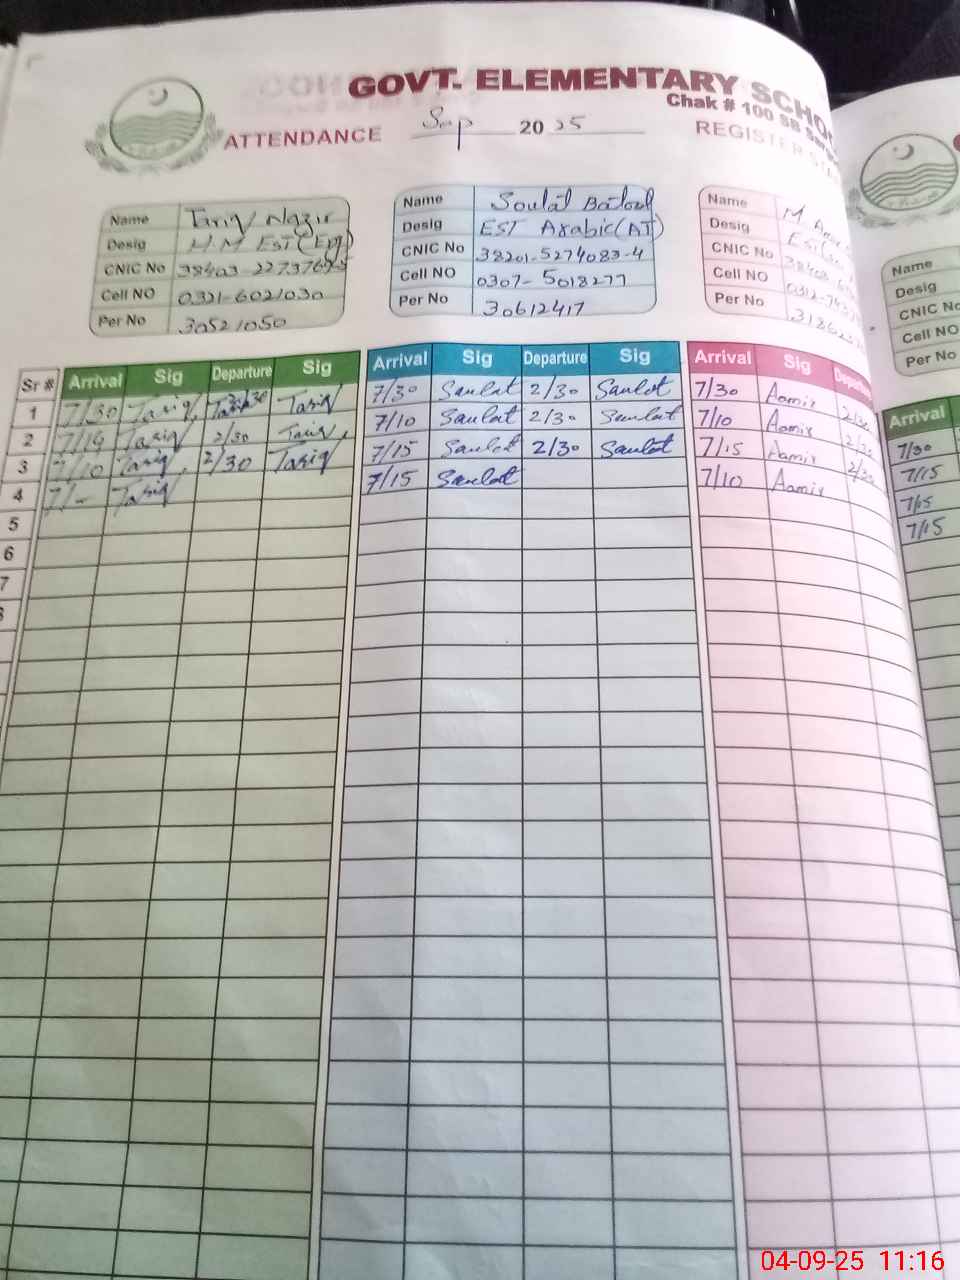 GOVT. ELEMENTARY SCHO
Chak # 100 SB Sargo
ATTENDANCE Sep 2025 REGISTER STA
Name Tariq Nazir
Desig H.M EST(Eng)
CNIC No 38403-2273769-5
Cell NO 0321-6021030
Per No 30521050
Name Soulat Batool
Desig EST Arabic(AT)
CNIC No 38201-5274083-4
Cell NO 0307-5018277
Per No 30612417
Name M
Desig EST
CNIC No 38403
Cell NO 0312-
Per No 31862
Name
Desig
CNIC No
Cell NO
Per No
Sr # Arrival Sig Departure Sig Arrival Sig Departure Sig Arrival Sig Departure Arrival
1 7/30 Tariq 2/30 Tariq 7/30 Saulat 2/30 Saulat 7/30 Aamir 2/30 7/30
2 7/14 Tariq 2/30 Tariq 7/10 Saulat 2/30 Saulat 7/10 Aamir 2/30 7/15
3 7/10 Tariq 2/30 Tariq 7/15 Saulat 2/30 Saulat 7/15 Aamir 2/30 7/15
4 Tariq 7/15 Saulat 7/10 Aamir 7/15
5
6
7
8
04-09-25 11:16